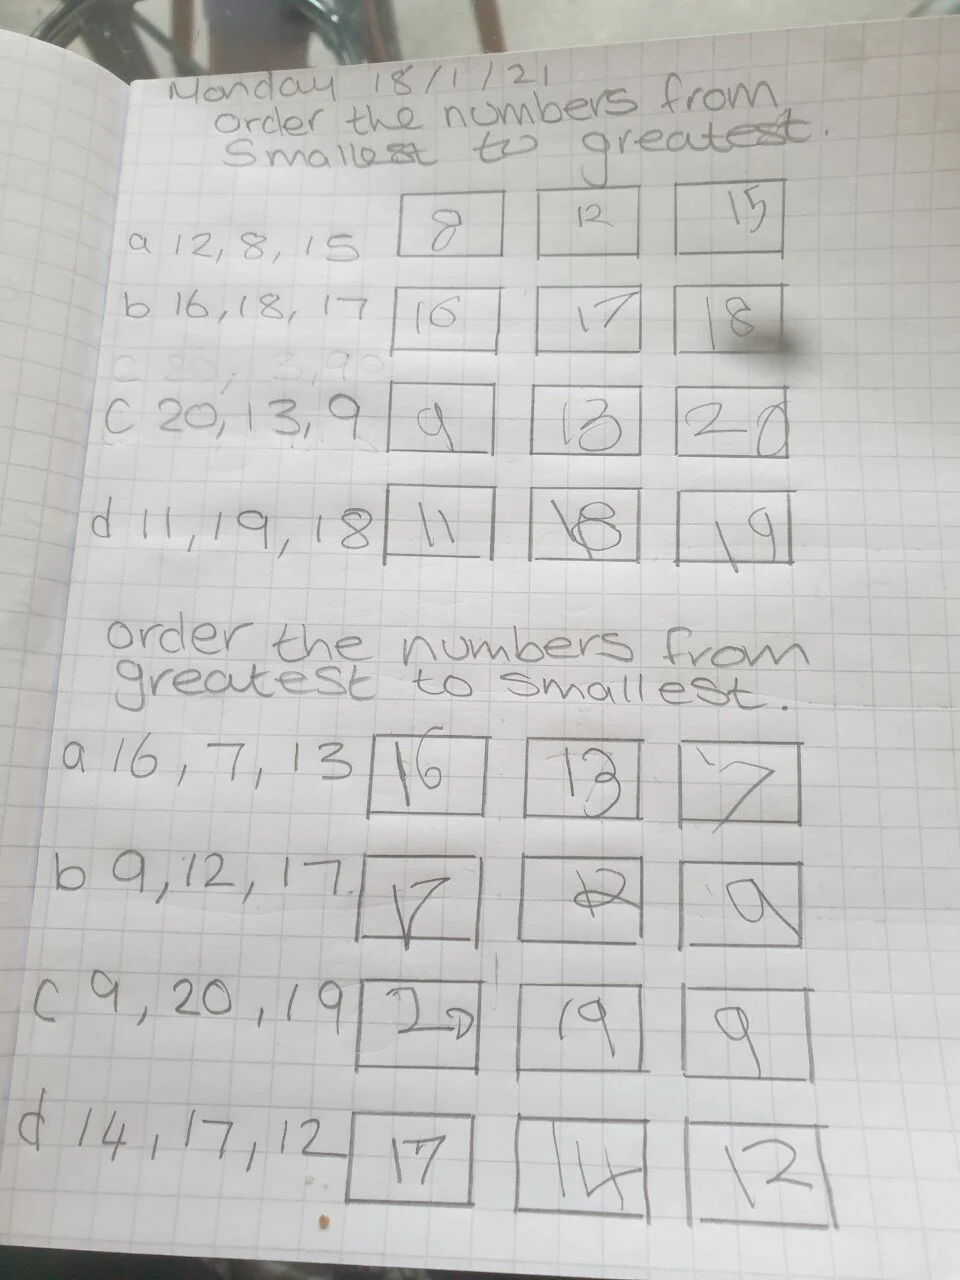 Monday 18/1/21
order the numbers from
smallest to greatest.
a 12, 8, 15 8 12 15
b 16, 18, 17 16 17 18
c 20, 13, 9 9 13 20
d 11, 19, 18 11 18 19
order the numbers from
greatest to smallest.
a 16, 7, 13 16 13 7
b 9, 12, 17. 17 12 9
c 9, 20, 19 20 19 9
d 14, 17, 12 17 14 12